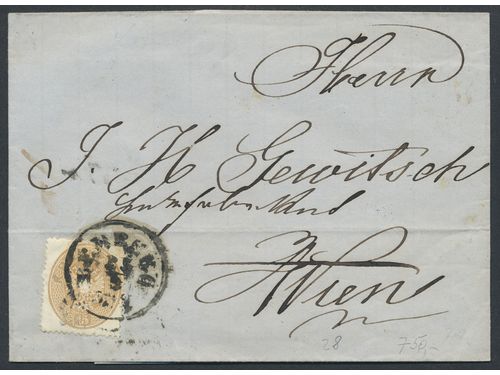 Herrn
J. H. Gewitsch
Wien
28 750,-